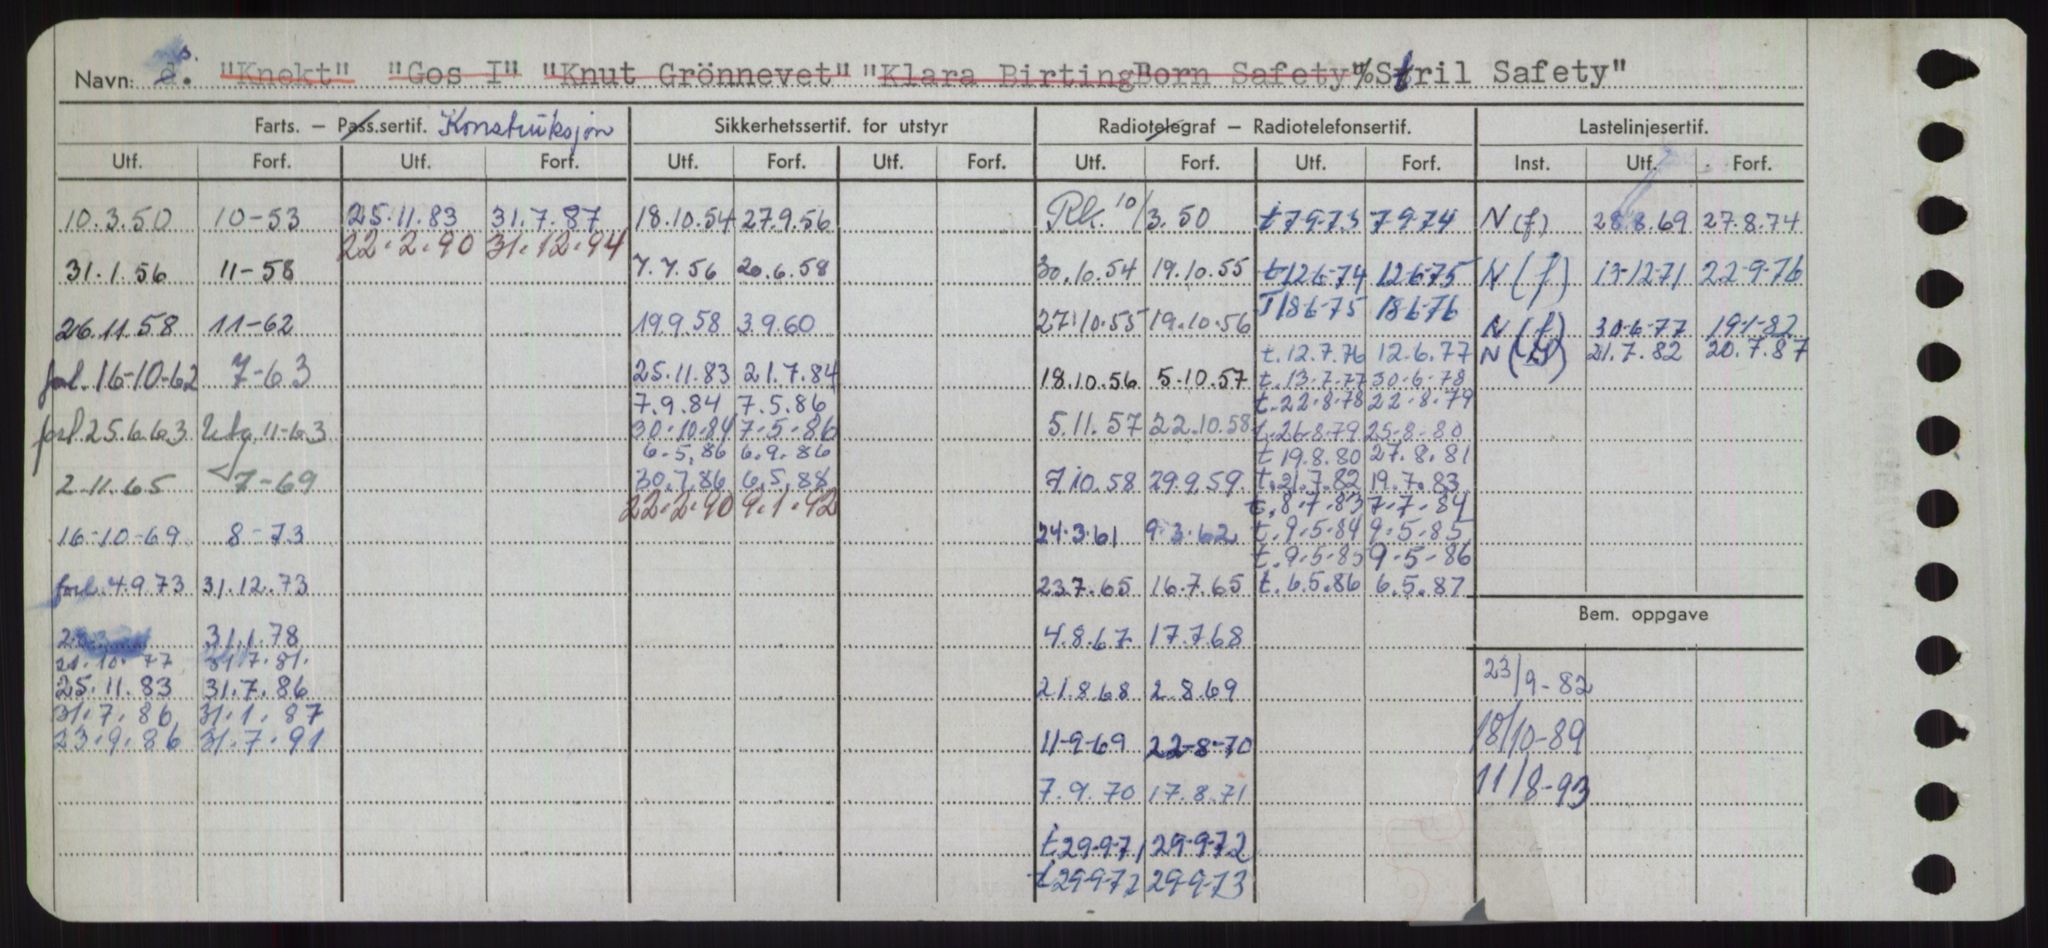 Navn: s. "Knekt" "Gos I" "Knut Grönnevet" "Klara Birting Born Safety" "Stril Safety"
Farts. — Pass.sertif. Konstruksjon Sikkerhetssertif. for utstyr Radiotelegraf — Radiotelefonsertif. Lastelinjesertif.
Utf. Forf. Utf. Forf. Utf. Forf. Utf. Forf. Utf. Forf. Utf. Forf. Inst. Utf. Forf.
10.3.50 10-53 25.11.83 31.7.87 18.10.54 27.9.56 Rk. 10/3.50 t 7-9-73 7-9-74 N (f) 28.8.69 27.8.74
22.2.90 31.12.94
31.1.56 11-58 7.7.56 20.6.58 30.10.54 19.10.55 t 12-6-74 12-6-75 N (f) 13-12-71 22-9-76
T 18-6-75 18-6-76
26.11.58 11-62 19.9.58 3.9.60 27.10.55 19.10.56 N (f) 30-6-77 19-1-82
t. 12.7.76 12.6.77 N 21.7.82 20.7.87
forl. 16-10-62 7-63 25.11.83 21.7.84 18.10.56 5.10.57 t. 13-7-77 30-6-78
7.9.84 7.5.86 t. 22-8-78 22-8-79
forl 25.6.63 Utg 11-63 30-10-84 7-5-86 5.11.57 22.10.58 t. 26-8-79 25-8-80
6.5.86 6.9.86 t 19.8.80 27.8.81
2.11.65 7-69 30.7.86 6.5.88 7.10.58 29.9.59 t. 21.7.82 19.7.83
22.2.90 9.1.92 t. 8-7-83 7-7-84
16-10-69 8-73 24.3.61 9.3.62 t. 9-5-84 9-5-85
t. 9-5-85 9-5-86
forl. 4.9.73 31.12.73 23.7.65 16.7.65 t. 6.5.86 6.5.87
Bem. oppgave
31.1.78 4.8.67 17.7.68
21.10.77 31.7.81.
25.11.83 31.7.86 21.8.68 2.8.69 23/9-82
31.7.86 31.1.87
23.9.86 31.7.91 11-9-69 22-8-70 18/10-89
7.9.70 17.8.71 11/8-93
t. 29-9-71 29-9-72
t. 29-9-72 29-9-73